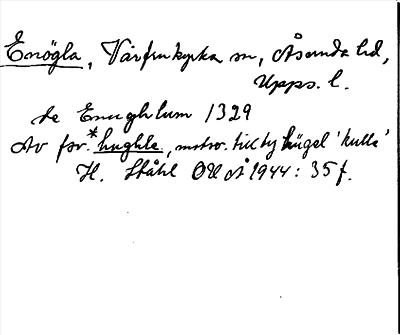 Enögla, Vårfrukyrka sn, Åsunda hd,
Upps. l.
de Enughlum 1329
Av fsv. *hughle, motsv. till ty hügel 'kulle'
H. Ståhl OUÅ 1944: 35 f.